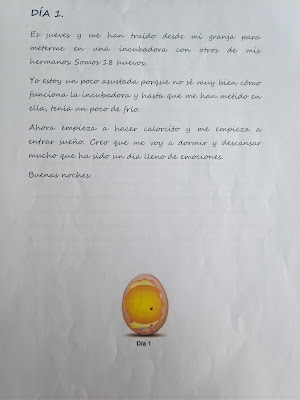 DÍA 1.
Es jueves y me han traído desde mi granja para
meterme en una incubadora con otros de mis
hermanos. Somos 18 huevos.
Yo estoy un poco asustada porque no sé muy bien cómo
funciona la incubadora y hasta que me han metido en
ella, tenía un poco de frío.
Ahora empieza a hacer calorcito y me empieza a
entrar sueño. Creo que me voy a dormir y descansar
mucho que ha sido un día lleno de emociones.
Buenas noches.
Día 1